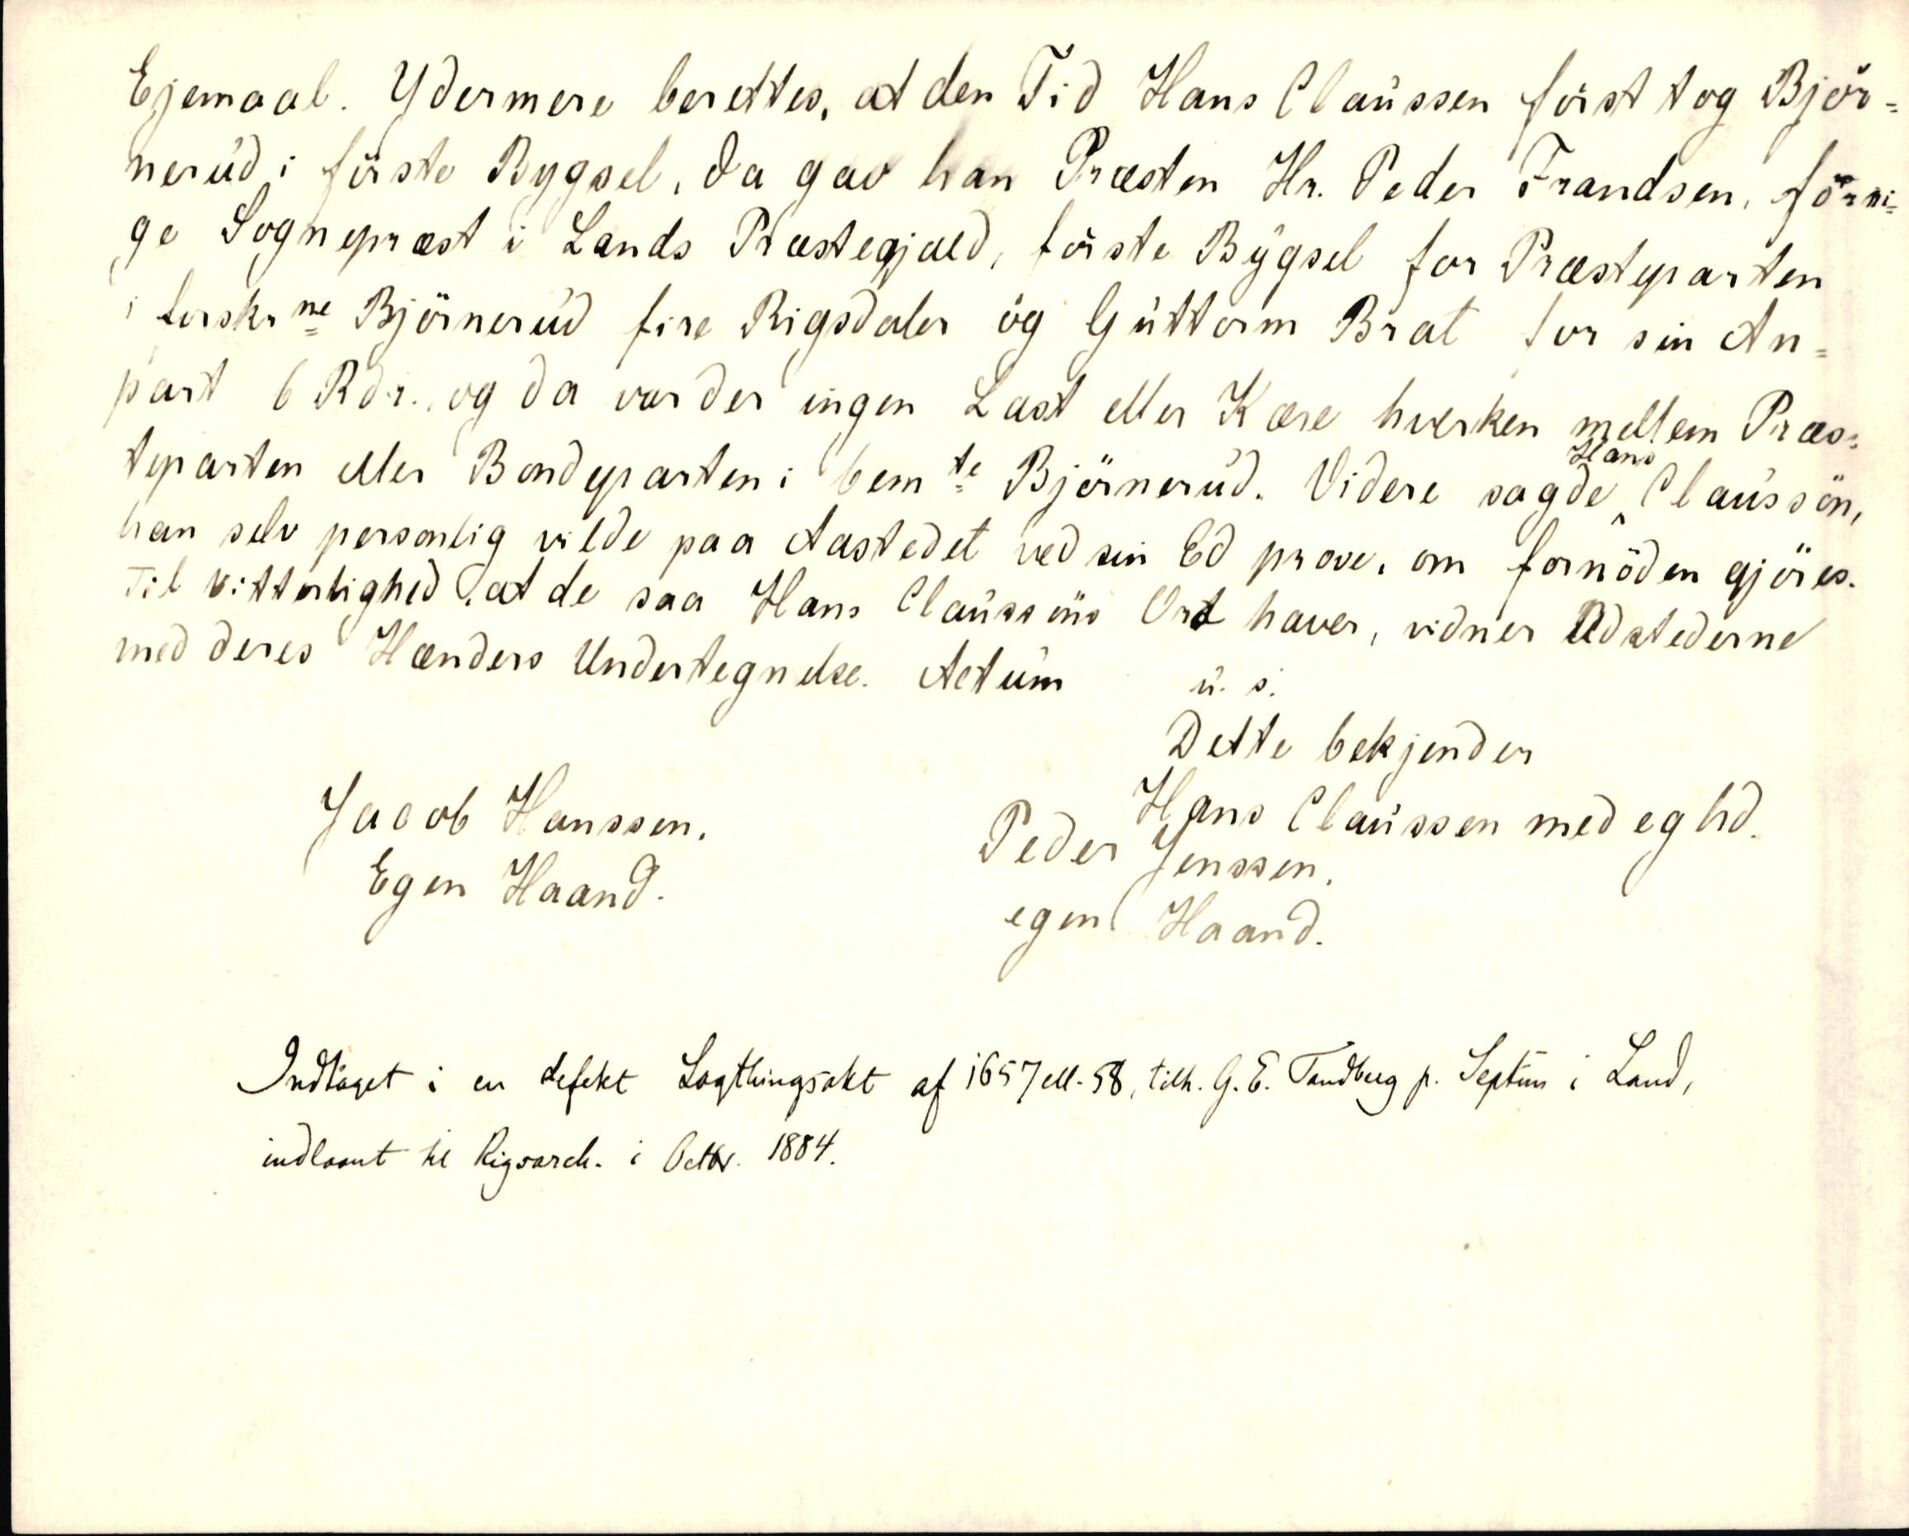 Ejemaal. Ydermere berettes, at den Tid Hans Claussen först tog Björ=
nerud i förste Bygsel, da gav han Præsten Hr. Peder Frandsen, förri=
ge Sognepræst i Lands Præstegjæld, förste Bygsel for Præsteparten
i forskrne Björnerud fire Rigsdaler og Guttorm Brat for sin An=
part 6 Rdr., og da var der ingen Last eller Kære hverken mellem Præs=
teparten eller Bondeparten i bemte Björnerud. Videre sagde Hans Claussön,
han selv personlig vilde paa Aastedet ved sin Ed prove, om fornöden gjöres.
Til Vitterlighed, at de saa Hans Claussöns Ord haver, vidner Udstederne
med deres Hænders Undertegnelse. Actum u. s.
Dette bekjender
Hans Claussen med eg hd.
Jacob Hanssen.
Egen Haand.
Peder Jenssen.
egen Haand.
Indtaget i en defekt Lagthingsakt af 1657 ell. 58, tilh. G. E. Tandberg p. Septun i Land,
indlaant til Rigsarch. i Octbr. 1884.